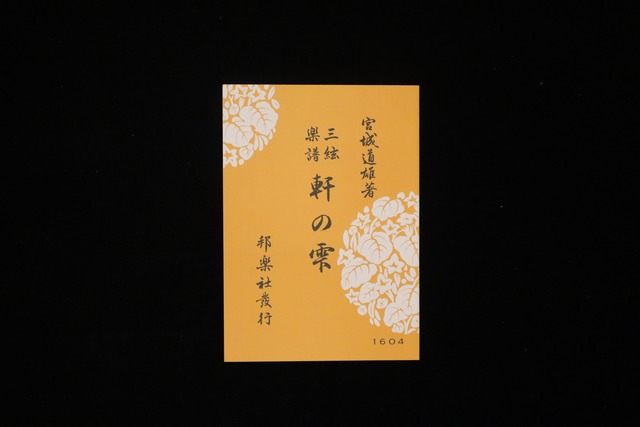 宮城道雄著
三絃
楽譜
軒の雫
邦楽社發行
1604